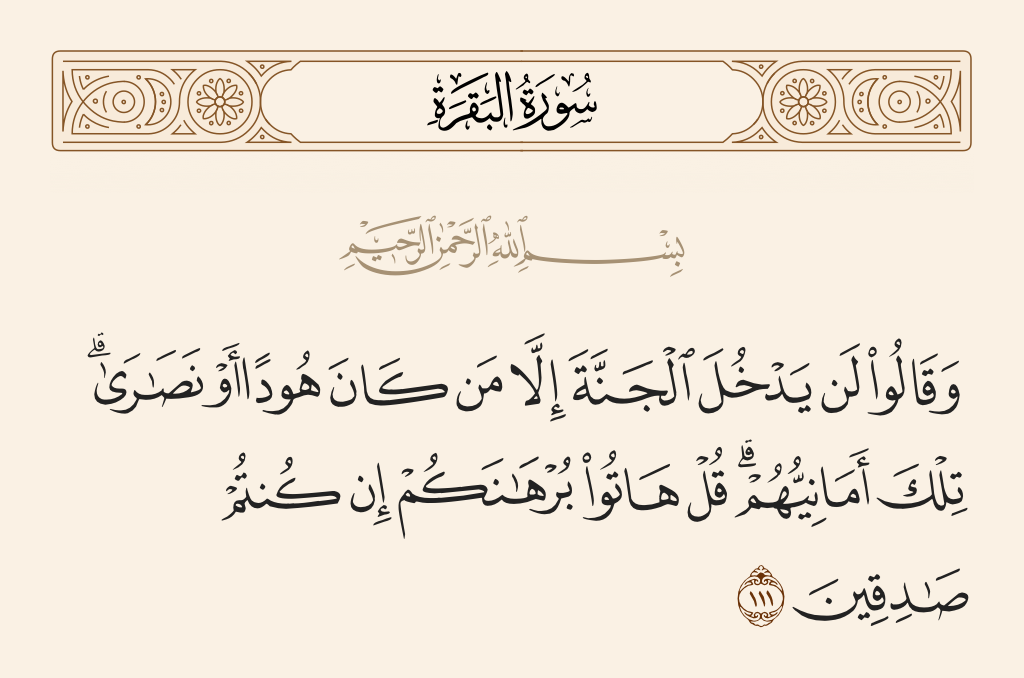 سُورَةُ البَقَرَةِ
بِسْمِ ٱللَّهِ ٱلرَّحْمَٰنِ ٱلرَّحِيمِ
وَقَالُوا۟ لَن يَدْخُلَ ٱلْجَنَّةَ إِلَّا مَن كَانَ هُودًا أَوْ نَصَٰرَىٰ ۗ
تِلْكَ أَمَانِيُّهُمْ ۗ قُلْ هَاتُوا۟ بُرْهَٰنَكُمْ إِن كُنتُمْ
صَٰدِقِينَ ١١١